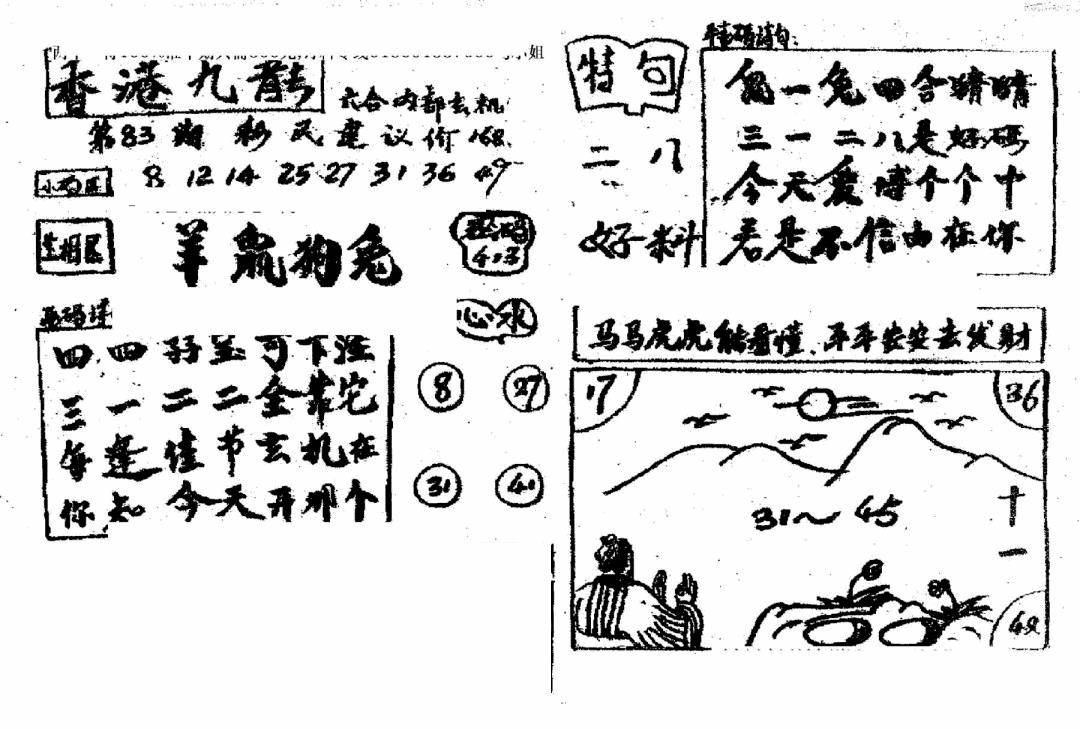 香港九龍
六合内部玄机
第83期 彩民建议价168.
8 12 14 25 27 31 36 49
生相区
羊鼠狗兔
四四好
三一二二全靠它
每逢佳节玄机在
你知今天开那个
心水
8 27
31 41
特句
二八
好料
平特码诗句:
兔一兔四合晴晴
三一二八是好码
今天爱博个个中
若是不信由在你
马马虎虎能看懂、平平安安去发财
17
36
31～45
十一